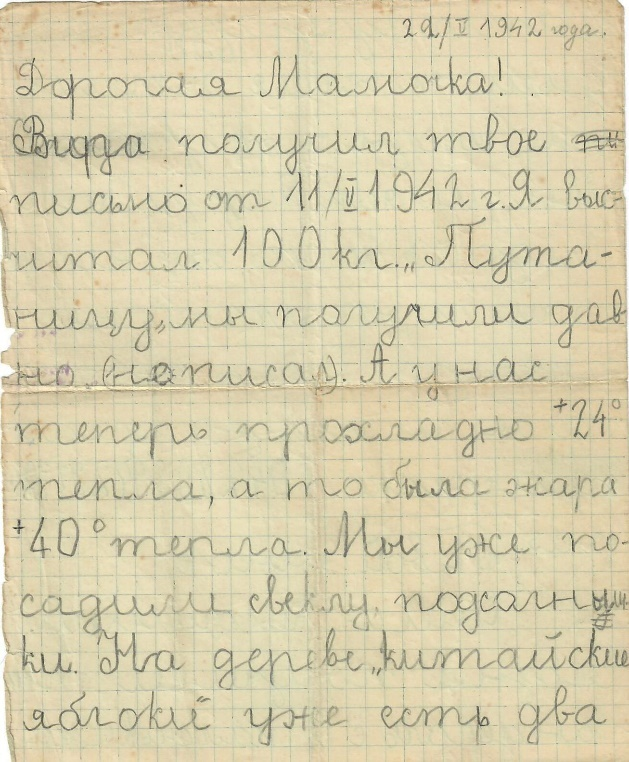 22/V 1942 года.
Дорогая Мамочка!
получил твое
письмо от 11/V 1942 г. Я выс-
читал 100 кг. „Пута-
ницу„ мы получили дав
но (написал). А у нас
теперь прохладно +24°
тепла, а то была жара
+40° тепла. Мы уже по-
садили свеклу, подсолны
ки. На дереве „китайские
яблоки" уже есть два